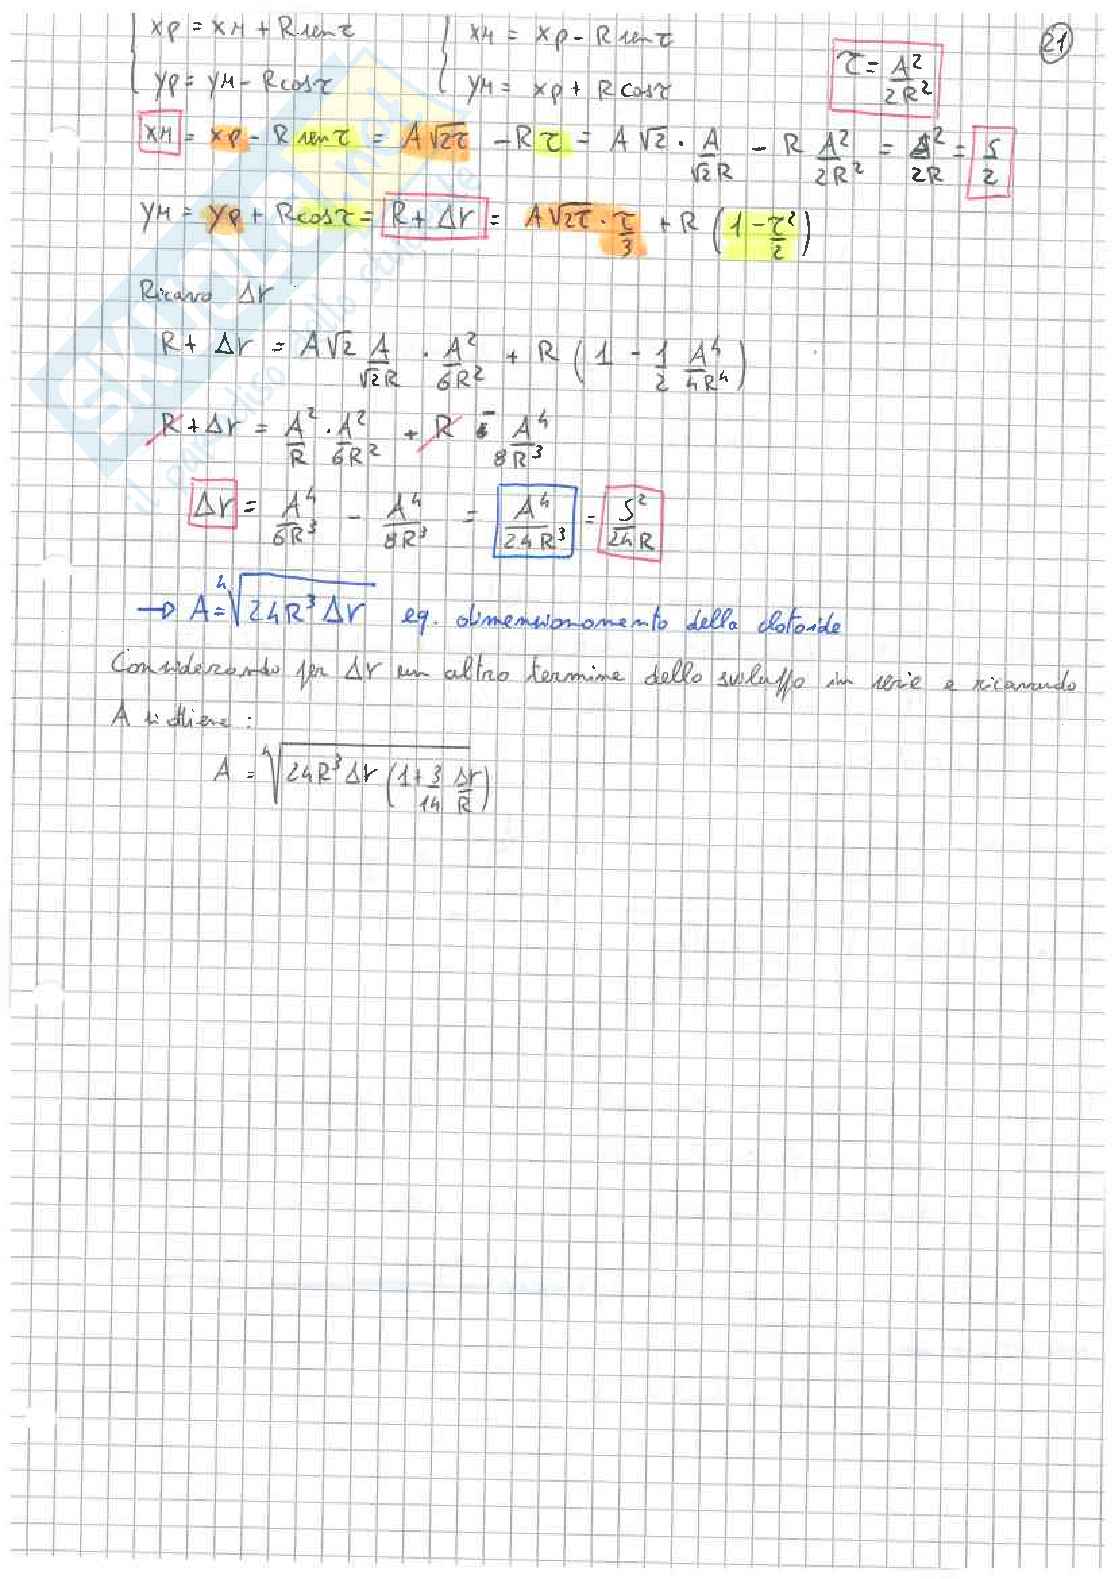 xp = xM + R senτ    xM = xp - R senτ    21
yp = yM - R cosτ    yM = xp + R cosτ    τ = A²/2R²
xM = xp - R senτ = A√2τ - R τ = A√2 · A/√2R - R A²/2R² = A²/2R = S/2
yM = yp + R cosτ = R + Δr = A√2τ · τ/3 + R (1 - τ²/2)
Ricavo Δr
R + Δr = A√2 A/√2R · A²/6R² + R (1 - 1/2 A⁴/4R⁴)
R + Δr = A²/R · A²/6R² + R - A⁴/8R³
Δr = A⁴/6R³ - A⁴/8R³ = A⁴/24R³ = S²/24R
→ A = ⁴√24R³Δr eq. dimensionamento della clotoide
Considerando per Δr un altro termine dello sviluppo in serie e ricavando
A si ottiene :
A = ⁴√24R³Δr (1 + 3/14 Δr/R)
SKUOLA.net
il paradiso dello studente